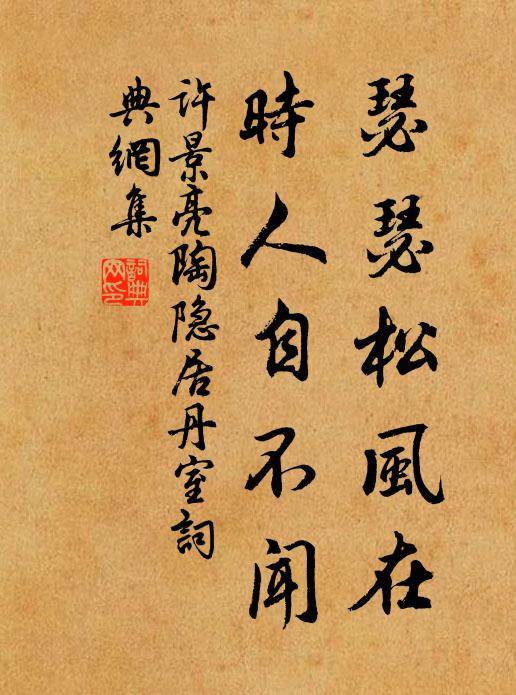 瑟瑟松風在
時人自不聞
許景亮陶隐居丹室詞
典網集
詞典
网印